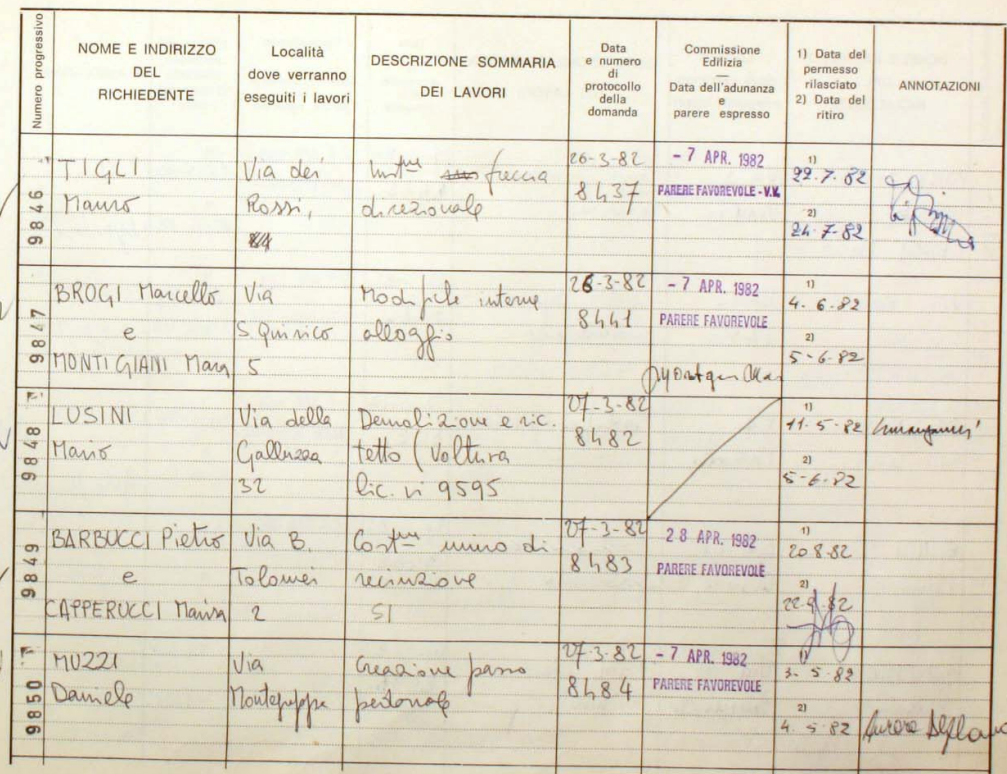 Numero progressivo
NOME E INDIRIZZO DEL RICHIEDENTE
Località dove verranno eseguiti i lavori
DESCRIZIONE SOMMARIA DEI LAVORI
Data e numero di protocollo della domanda
Commissione Edilizia — Data dell'adunanza e parere espresso
1) Data del permesso rilasciato 2) Data del ritiro
ANNOTAZIONI
9846
TIGLI Mauro
Via dei Rossi,
freccia direzionale
26-3-82 8437
- 7 APR. 1982 PARERE FAVOREVOLE - V.V.
1) 22.7.82
2) 24.7.82
9847
BROGI Marcello e MONTIGIANI Mara
Via S. Quirico 5
Modifiche interne alloggio
26-3-82 8441
- 7 APR. 1982 PARERE FAVOREVOLE
1) 4.6.82
2) 5-6.82
9848
LUSINI Mario
Via della Galluzza 32
Demolizione e ric. tetto (Voltura lic. n. 9595
27-3-82 8482
1) 11.5-82
2) 5-6.82
9849
BARBUCCI Pietro e CAPPERUCCI Marisa
Via B. Tolomei 2
Cost.ne muro di recinzione SI
27-3-82 8483
28 APR. 1982 PARERE FAVOREVOLE
1) 20.8.82
2)
9850
MUZZI Daniele
Via
Creazione passo pedonale
27-3-82 8484
- 7 APR. 1982 PARERE FAVOREVOLE
1) 3.5.82
2) 4.5.82